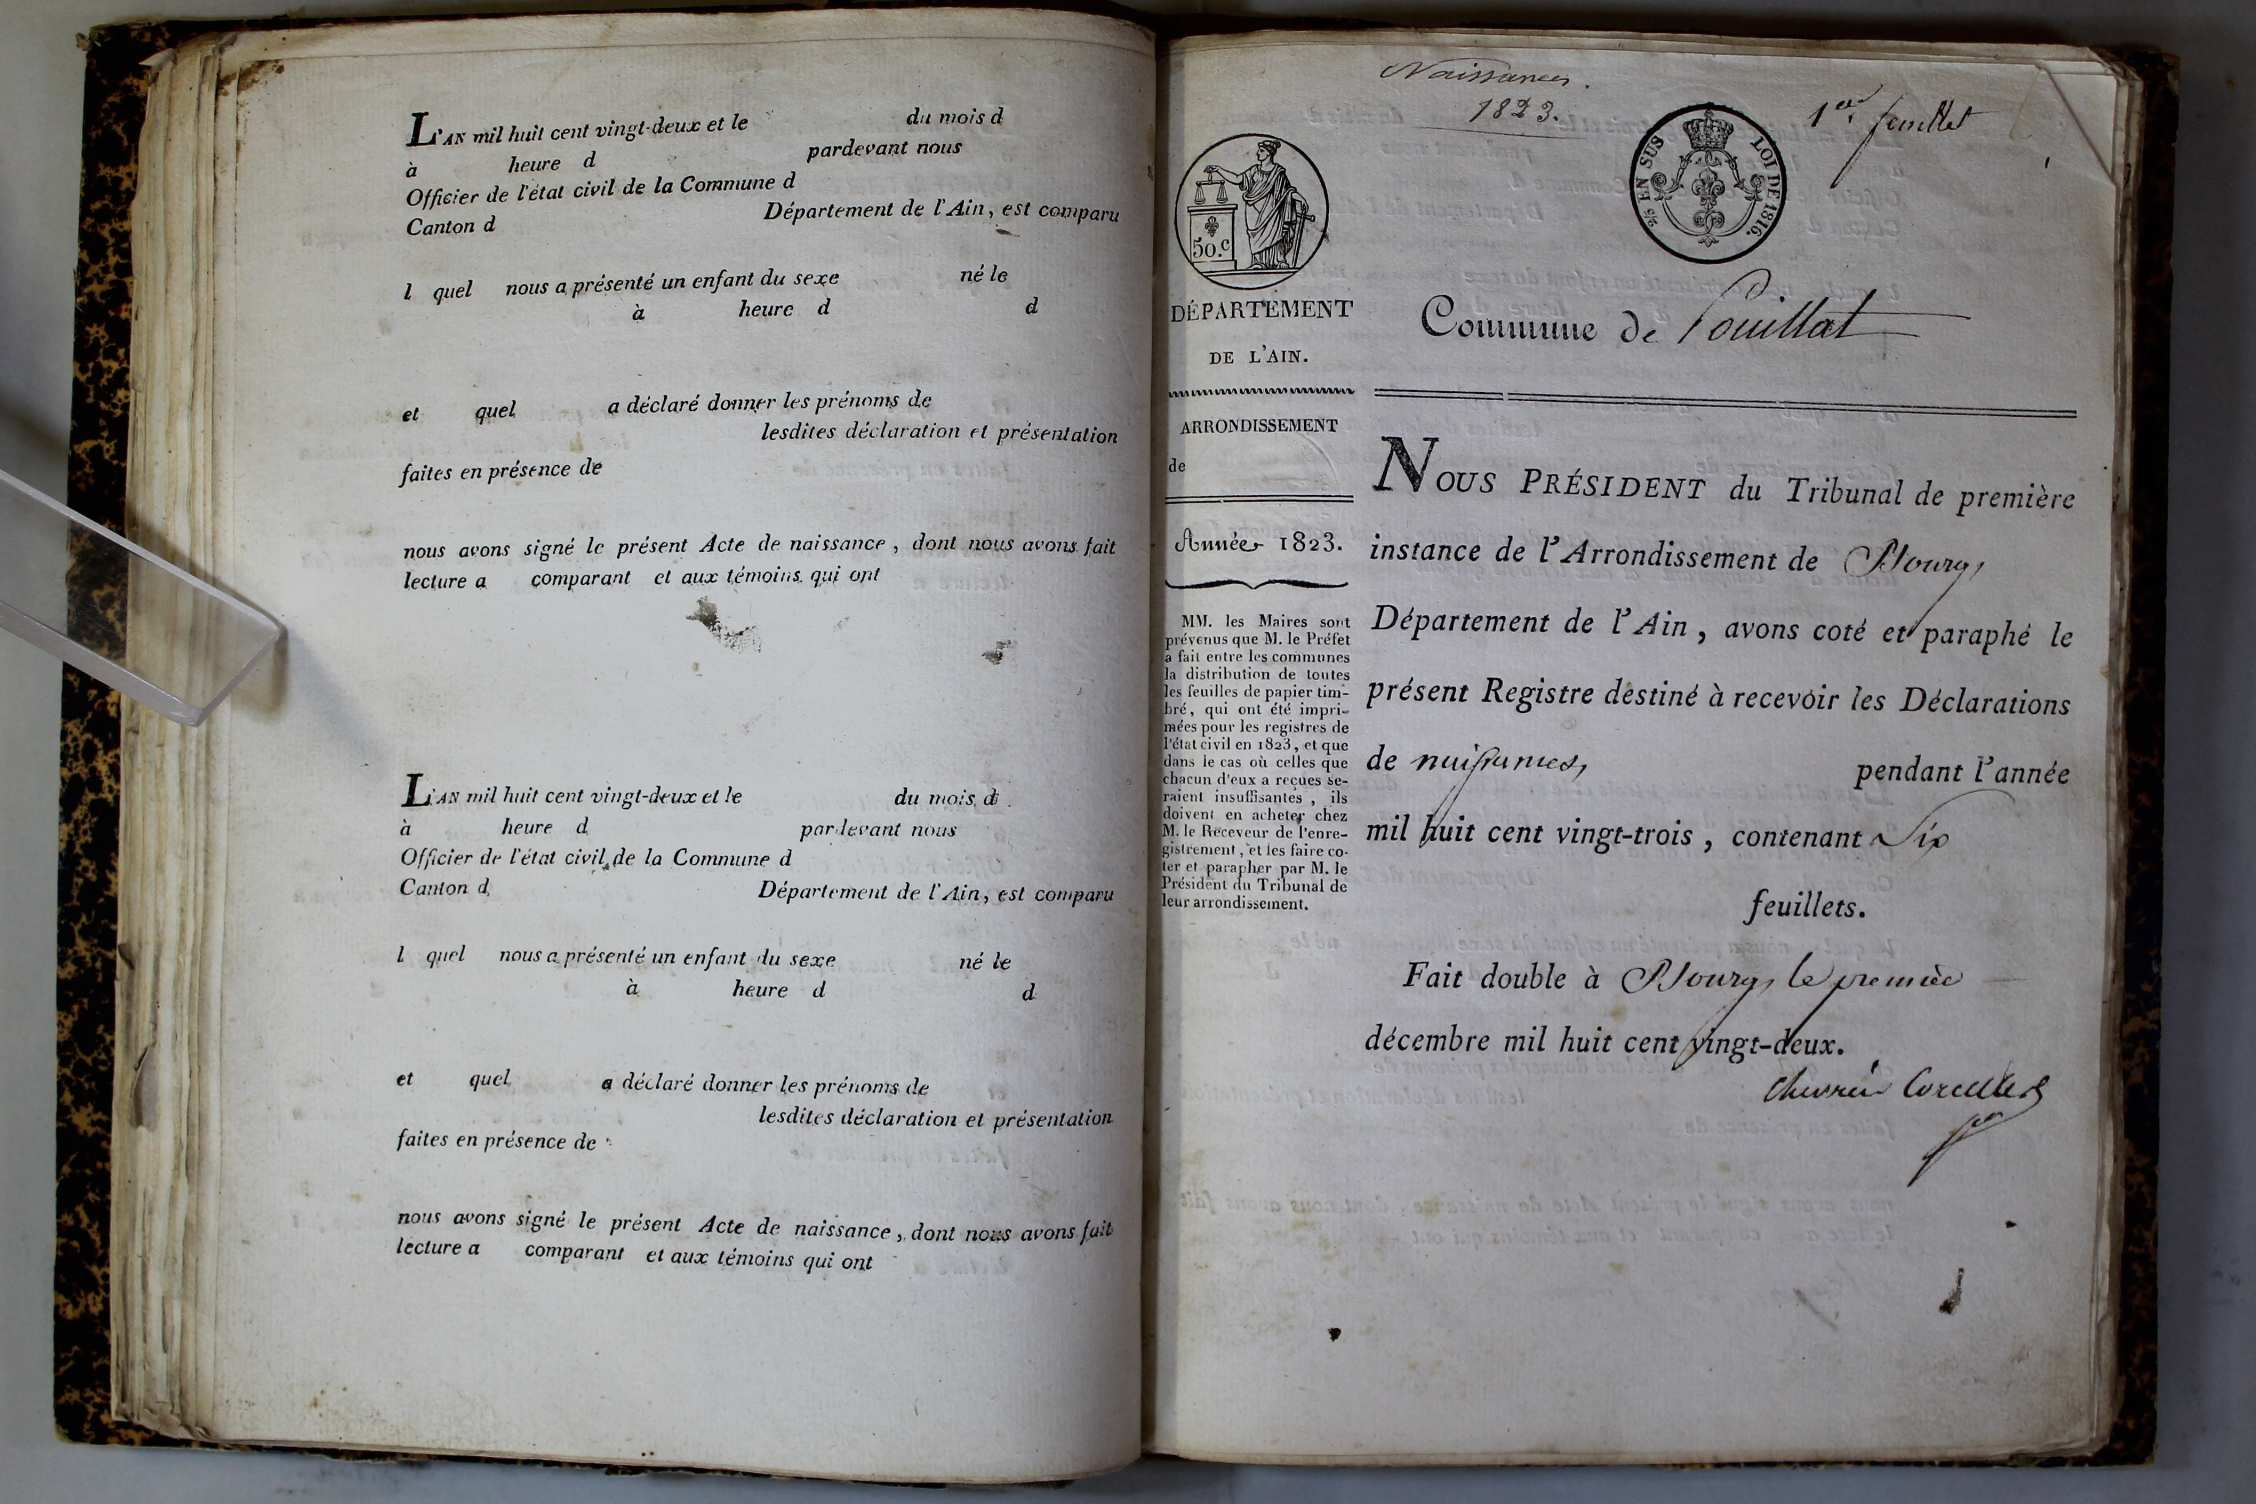 L'AN mil huit cent vingt-deux et le du mois d
à heure d pardevant nous
Officier de l'état civil de la Commune d
Canton d Département de l'Ain, est comparu
l quel nous a présenté un enfant du sexe né le
à heure d d
et quel a déclaré donner les prénoms de
lesdites déclaration et présentation
faites en présence de
nous avons signé le présent Acte de naissance, dont nous avons fait
lecture a comparant et aux témoins qui ont
L'AN mil huit cent vingt-deux et le du mois d
à heure d pardevant nous
Officier de l'état civil de la Commune d
Canton d Département de l'Ain, est comparu
l quel nous a présenté un enfant du sexe né le
à heure d d
et quel a déclaré donner les prénoms de
lesdites déclaration et présentation
faites en présence de
nous avons signé le présent Acte de naissance, dont nous avons fait
lecture a comparant et aux témoins qui ont
Naissances.
1823.
1er feuillet
50.c
2/5 EN SUS LOI DE 1816.
DÉPARTEMENT
DE L'AIN.
ARRONDISSEMENT
de
Année 1823.
MM. les Maires sont
prévenus que M. le Préfet
a fait entre les communes
la distribution de toutes
les feuilles de papier tim-
bré, qui ont été impri-
mées pour les registres de
l'état civil en 1823, et que
dans le cas où celles que
chacun d'eux a reçues se-
raient insuffisantes, ils
doivent en acheter chez
M. le Receveur de l'enre-
gistrement, et les faire co-
ter et parapher par M. le
Président du Tribunal de
leur arrondissement.
Commune de Pouillat
NOUS PRÉSIDENT du Tribunal de première
instance de l'Arrondissement de Bourg,
Département de l'Ain, avons coté et paraphé le
présent Registre destiné à recevoir les Déclarations
de naissances, pendant l'année
mil huit cent vingt-trois, contenant Six
feuillets.
Fait double à Bourg, le premier
décembre mil huit cent vingt-deux.